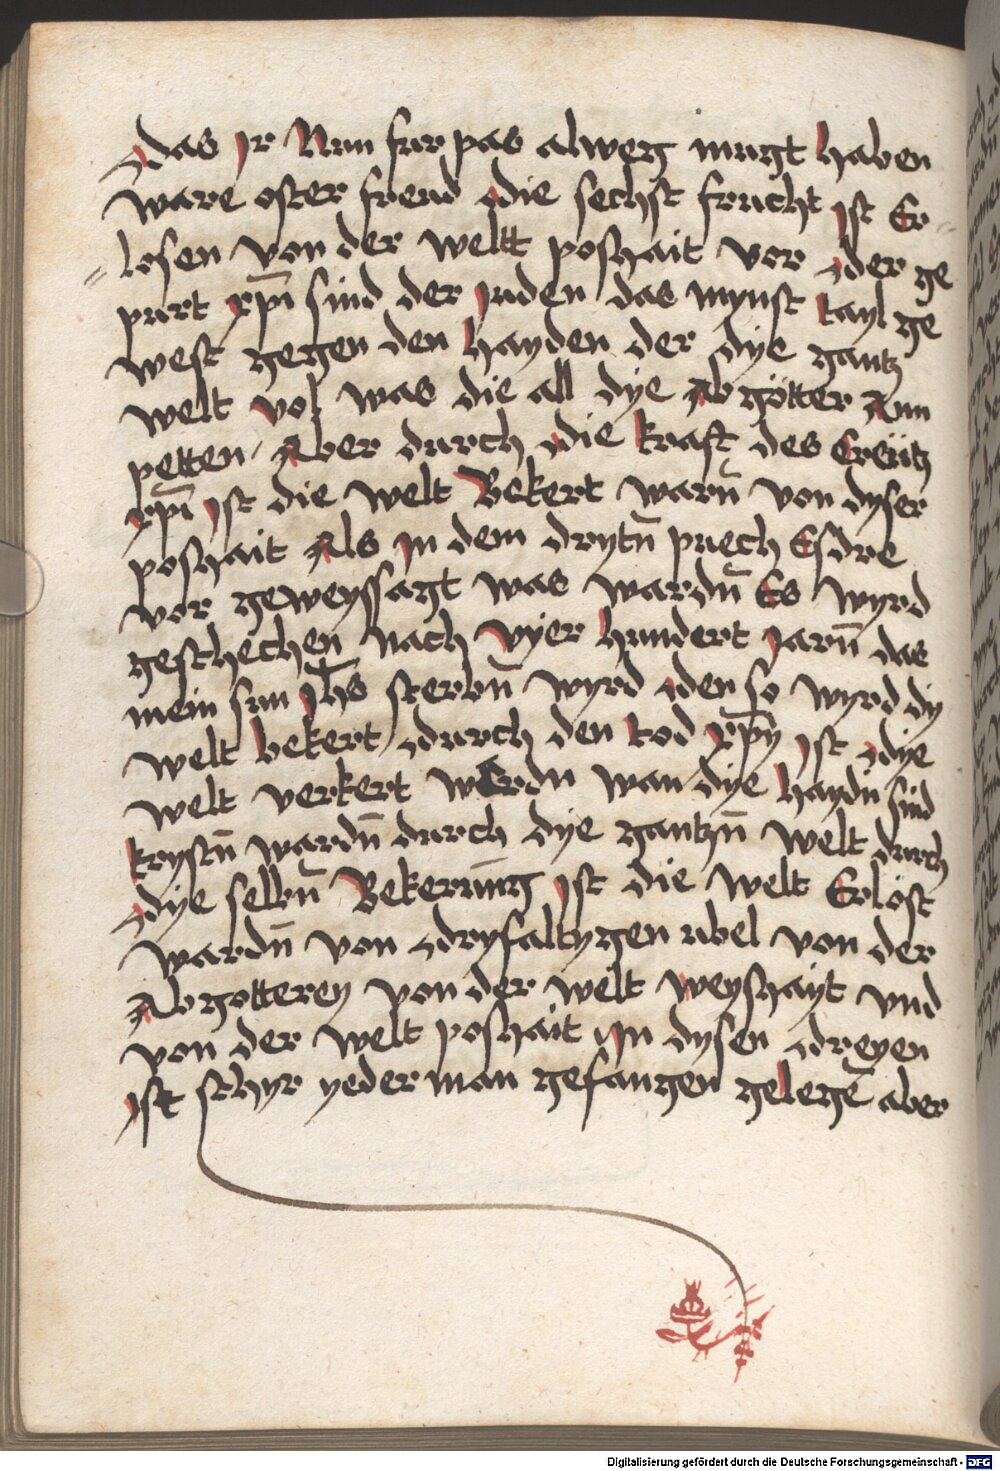 das Ir Nun fur pas alweg mugt haben
ware oster freud die sechst frucht ist Er-
losen von der weltt poshait vor der ge
purt xp̄i sind der Juden das mynst tayl ge
west gegen den hayden der dye gantz
welt vol was die all dye Abgötter Ann
petten / Aber durch die kraft des Creütz
xp̄i Ist die welt Bekert warn̄ von dyser
poshait Als In dem drytn̄ puech Esdre
vor geweyssagt was wardn̄ Es wyrd
geschechen nach vyer hundert Jarn̄ das
mein sun Jhs̄ sterbn̄ wyrd den so wyrd dy
welt bekert / durch den tod xp̄y ist dye
welt verkert werdn wan dye haydn̄ sind
krystn̄ wardn̄ durch dye gantzn̄ welt durch
dye selbn̄ Bekerūng Ist die welt Erlöst
wardn̄ von dryfaltygen ubel von der
Abgotterey von der welt weyshayt vnd
von der welt poshait In dysen dreyen
ist schyr yederman gefangen gelegē aber
Digitalisierung gefördert durch die Deutsche Forschungsgemeinschaft - DFG